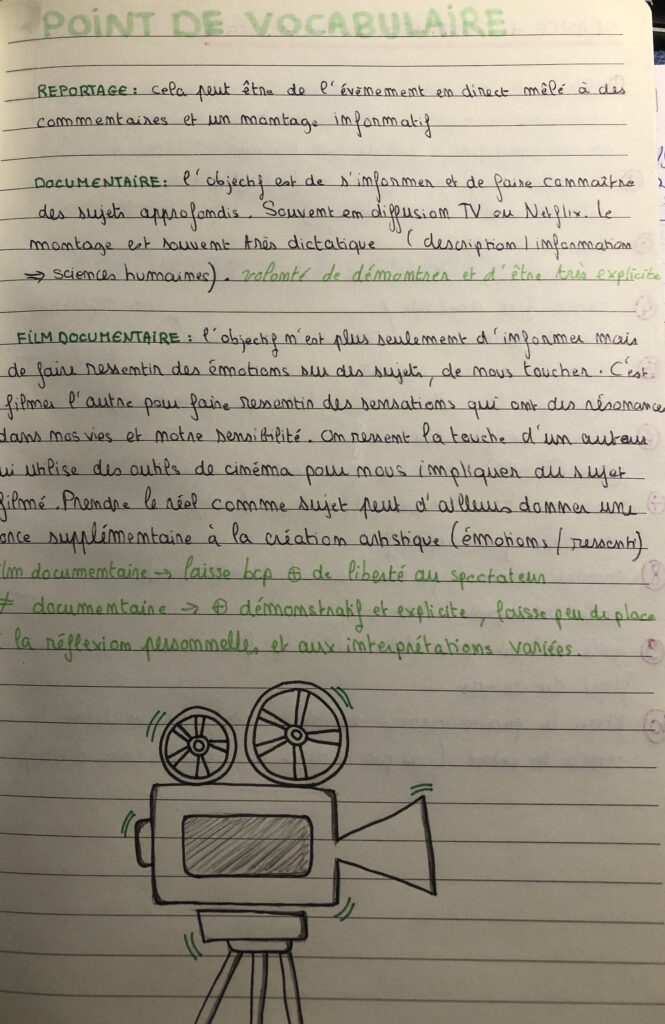 POINT DE VOCABULAIRE
REPORTAGE : cela peut être de l'évènement en direct mêlé à des
commentaires et un montage informatif
DOCUMENTAIRE : l'objectif est de s'informer et de faire connaître
des sujets approfondis. Souvent en diffusion TV ou Netflix. Le
montage est souvent très dictatique (description / information
⇒ sciences humaines). volonté de démontrer et d'être très explicite
FILM DOCUMENTAIRE : l'objectif n'est plus seulement d'informer mais
de faire ressentir des émotions sur des sujets, de nous toucher. C'est
filmer l'autre pour faire ressentir des sensations qui ont des résonances
dans nos vies et notre sensibilité. On ressent la touche d'un auteur
ui utilise des outils de cinéma pour nous impliquer au sujet
filmé. Prendre le réel comme sujet peut d'ailleurs donner une
orce supplémentaire à la création artistique (émotions / ressenti)
ilm documentaire → laisse bcp ⊕ de liberté au spectateur
≠ documentaire → ⊕ démonstratif et explicite, laisse peu de place
la réflexion personnelle, et aux interprétations variées.